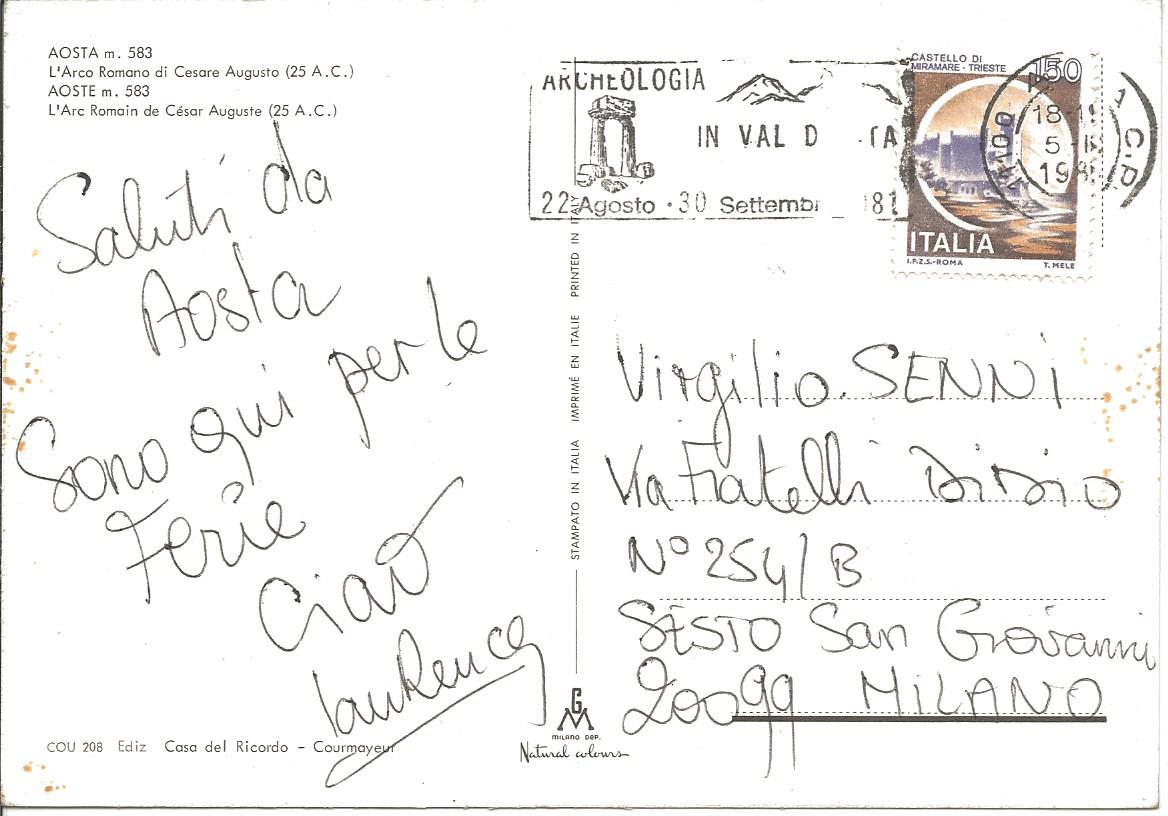 AOSTA m. 583
L'Arco Romano di Cesare Augusto (25 A.C.)
AOSTE m. 583
L'Arc Romain de César Auguste (25 A.C.)
Saluti da
Aosta
Sono qui per le
Ferie
Ciao
COU 208 Ediz Casa del Ricordo - Courmayeur
STAMPATO IN ITALIA IMPRIMÉ EN ITALIE PRINTED IN ITALY
GM
MILANO DEP.
Natural colours
ARCHEOLOGIA
IN VAL D
22 Agosto · 30 Settembr 81
CASTELLO DI
MIRAMARE - TRIESTE
150
ITALIA
I.P.Z.S.-ROMA T. MELE
18-11
5 -
198
C.P
Virgilio SENNI
Via Fratelli Di Dio
N° 254/B
SESTO San Giovanni
20099 MILANO